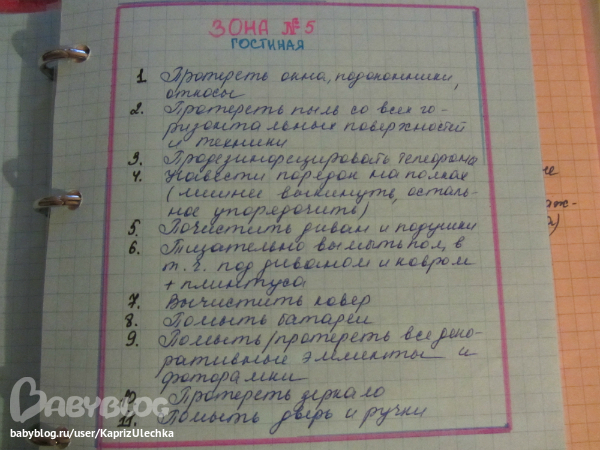 ЗОНА №5
ГОСТИНАЯ
1. Протереть окна, подоконники,
откосы
2. Протереть пыль со всех го-
ризонтальных поверхностей
и техники
3. Продезинфицировать телефона
4. Навести порядок на полках
(лишнее выкинуть, осталь-
ное упорядочить)
5. Почистить диван и подушки
6. Тщательно вымыть пол, в
т.ч. под диваном и ковром
+ плинтуса
7. Вычистить ковер
8. Помыть батареи
9. Помыть/протереть все деко-
ративные элементы и
фоторамки
10. Протереть зеркало
11. Помыть дверь и ручки
BABYBLOG
babyblog.ru/user/KaprizUlechka